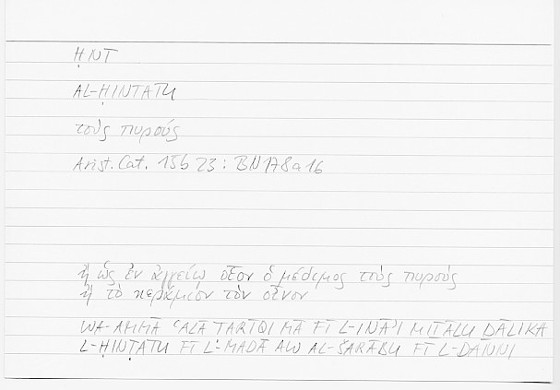 ḤNT
AL-ḤINTATU
τοὺς πυρούς
Arist. Cat. 15b 23 : BN178a16
ἢ ὡς ἐν ἀγγείῳ οἷον ὁ μέδιμνος τοὺς πυροὺς
ἢ τὸ κεράμιον τὸν οἶνον
WA-AMMĀ ʿALĀ TARĪQI MĀ FĪ L-INĀʾI MITĀLU DĀLIKA
L-ḤINTATU FĪ L-MADĀ AW AL-ŠARĀBU FĪ L-DANNI